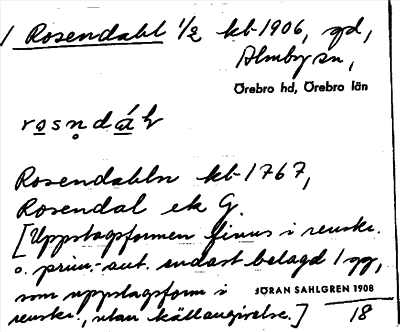 1 Rosendahl 1/2 kb 1906, gd,
Almby sn,
Örebro hd, Örebro län
rosndáɫ
Rosendahln kb 1767,
Rosendal ek G.
[Uppslagsformen finns i renskr.
o. prim.-aut. endast belagd 1 gg,
som uppslagsform i JÖRAN SAHLGREN 1908
renskr., utan källangivelse.] 18